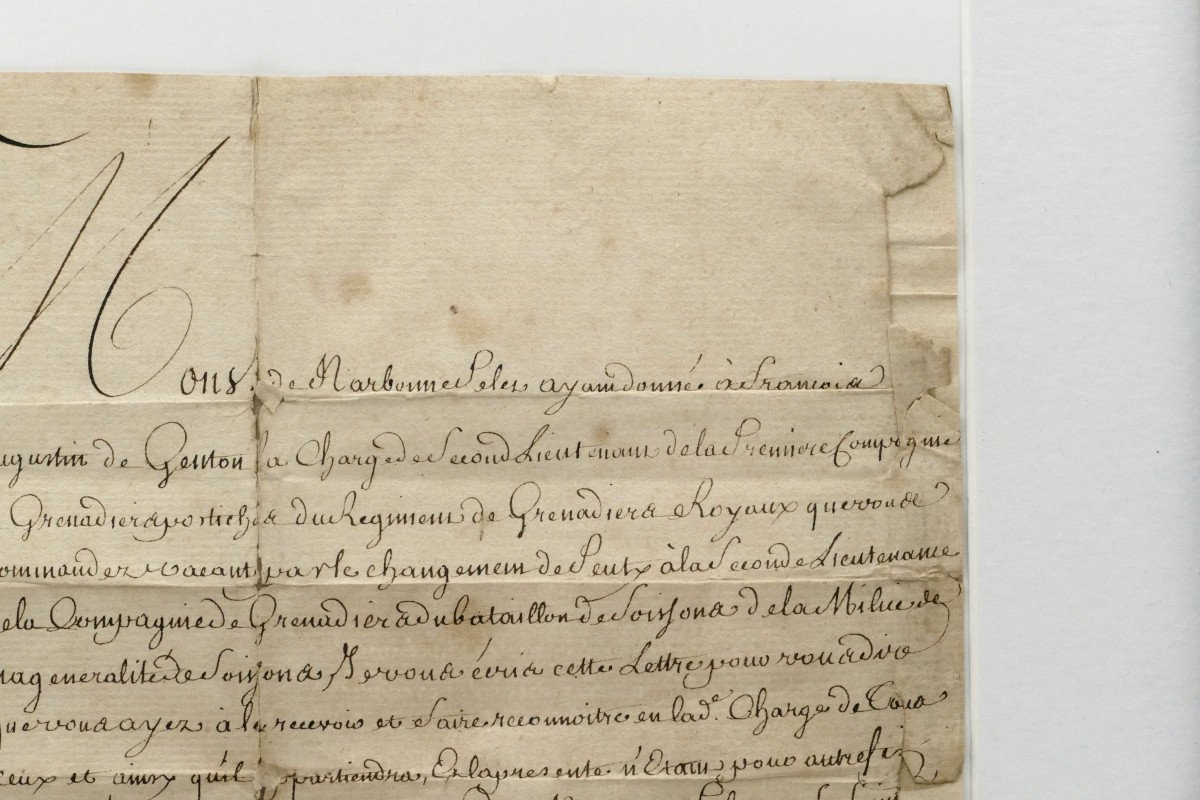 Mons. de Narbonne Pelet ayant donné à François
augustin de Genton la Charge de Second Lieutenant de la Premiere Compagnie
Grenadiers postiches du Regiment de Grenadiers Royaux que vous
commandez vacant par le changement de Peux à la Seconde Lieutenance
de la Compagnie de Grenadiers du bataillon de Soissons de la Milice de
ma generalité de Soissons, Je vous écris cette Lettre pour vous dire
que vous ayez à le recevoir et faire reconnoitre en lad.e Charge de Tous
ceux et ainsy qu'il partiendra, Et la presente n'Etant pour autre fin